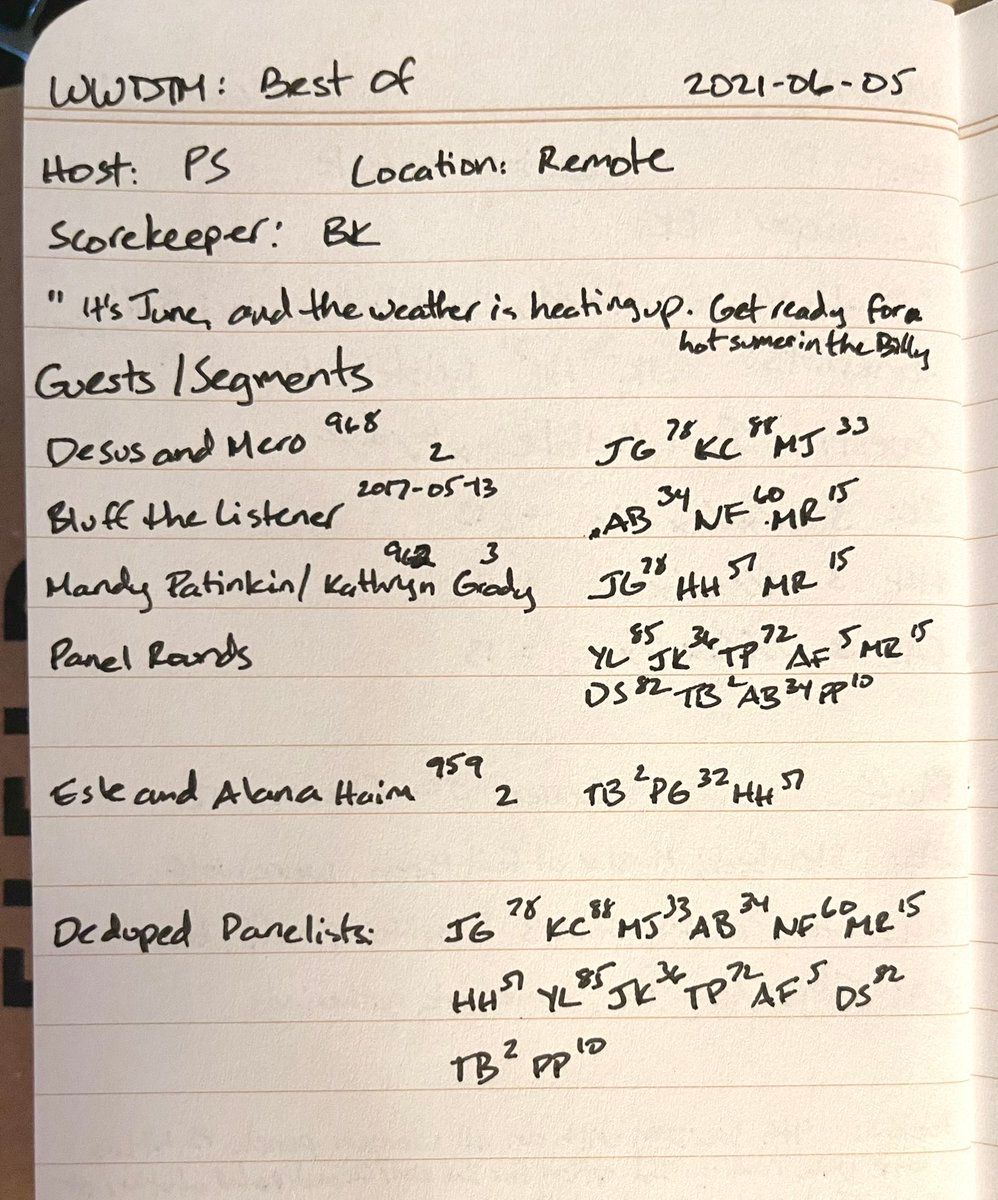 WWDTM: Best Of 2021-06-05
Host: PS Location: Remote
Scorekeeper: BK
" It's June, and the weather is heating up. Get ready for a
hot sumer in the Billy
Guests / Segments
Desus and Mero 968 2 JG 78 KC 88 MJ 33
Bluff the Listener 2017-05-13 AB 34 NF 60 MR 15
Mandy Patinkin / Kathryn Grody 962 3 JG 78 HH 57 MR 15
Panel Rounds YL 85 JK 36 TP 72 AF 5 MR 15
DS 82 TB 2 AB 34 PP 10
Este and Alana Haim 959 2 TB 2 PG 32 HH 57
Deduped Panelists: JG 78 KC 88 MJ 33 AB 34 NF 60 MR 15
HH 57 YL 85 JK 36 TP 72 AF 5 DS 82
TB 2 PP 10